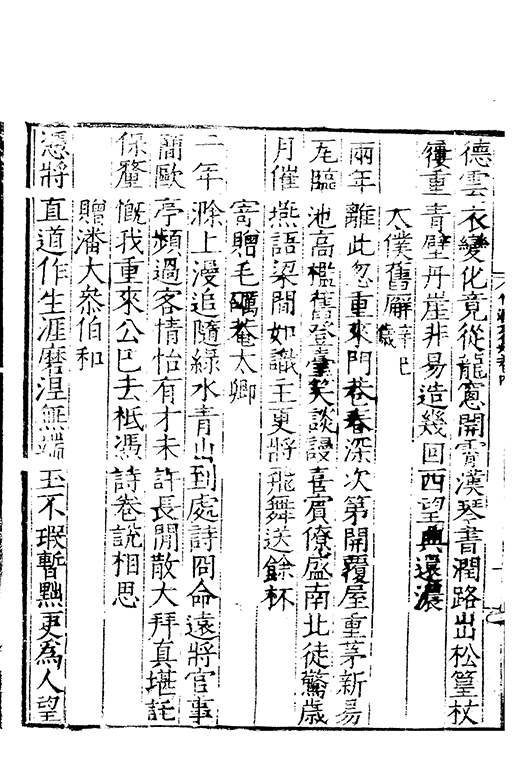 德雲衣變化竟從龍窓開霄漢琴書潤路出松篁杖
屨重青壁丹崖非易造幾回西望興還濃
太僕舊廨辛巳歲
兩年離此忽重來門巷春深次第開覆屋重茅新易
瓦臨池高檻舊登臺笑談謾喜賓僚盛南北徒驚歲
月催燕語梁間如識主更將飛舞送餘杯
寄贈毛礪菴太卿
二年滁上漫追隨綠水青山到處詩同命遠將官事
簡歐亭頻過客情怡有才未許長閒散大拜真堪託
保釐慨我重來公已去祗馮詩卷說相思
贈潘大叅伯和
憑將直道作生涯磨涅無端玉不瑕暫黜更為人望